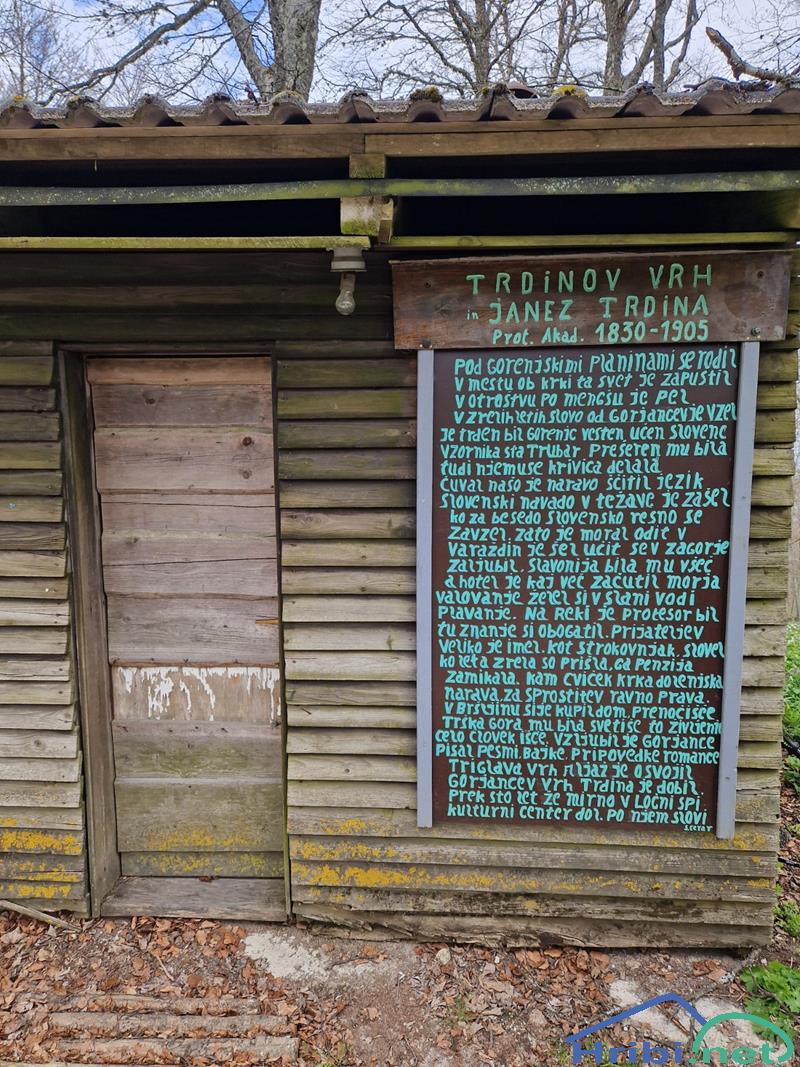 TRDINOV VRH
in JANEZ TRDINA
Prof. Akad. 1830-1905
POD GORENJSKIMI PLANINAMI SE RODIL
V MESTU OB KRKI TA SVET JE ZAPUSTIL
V OTROSTVU PO MENGŠU JE PEL
V ZRELIH LETIH SLOVO OD GORJANCEV JE VZEL
JE TRDEN BIL GORENC VESTEN UČEN SLOVENC
VZORNIKA STA TRUBAR PREŠEREN MU BILA
TUDI NJEMU SE KRIVICA DELALA
ČUVAL NAŠO JE NARAVO ŠČITIL JEZIK
SLOVENSKI NAVADO V TEŽAVE JE ZAŠEL
KO ZA BESEDO SLOVENSKO RESNO SE
ZAVZEL. ZATO JE MORAL ODIT V
VARAŽDIN JE ŠEL UČIT. SE V ZAGORJE
ZALJUBIL. SLAVONIJA BILA MU VŠEČ
A HOTEL JE KAJ VEČ ZAČUTIL MORJA
VALOVANJE ŽELEL SI V SLANI VODI
PLAVANJE. NA REKI JE PROFESOR BIL
TU ZNANJE SI OBOGATIL. PRIJATELJEV
VELIKO JE IMEL. KOT STROKOVNJAK SLOVEL
KO LETA ZRELA SO PRIŠLA, GA PENZIJA
ZAMIKALA. KAM CVIČEK KRKA DOLENJSKA
NARAVA, ZA SPROSTITEV RAVNO PRAVA.
V BRŠLJINU SI JE KUPIL DOM. PRENOČIŠČE
TRŠKA GORA, MU BILA SVETIŠČE TO ŽIVLJENJE
CELO ČLOVEK IŠČE. VZLJUBIL JE GORJANCE
PISAL PESMI. BAJKE. PRIPOVEDKE ROMANCE
TRIGLAVA VRH ALJAŽ JE OSVOJIL
GORJANCEV VRH TRDINA JE DOBIL
PREK STO LET ŽE MIRNO V LOČNI SPI.
KULTURNI CENTER DOL. PO NJEM SLOVI
J. CERAR
Hribi.net